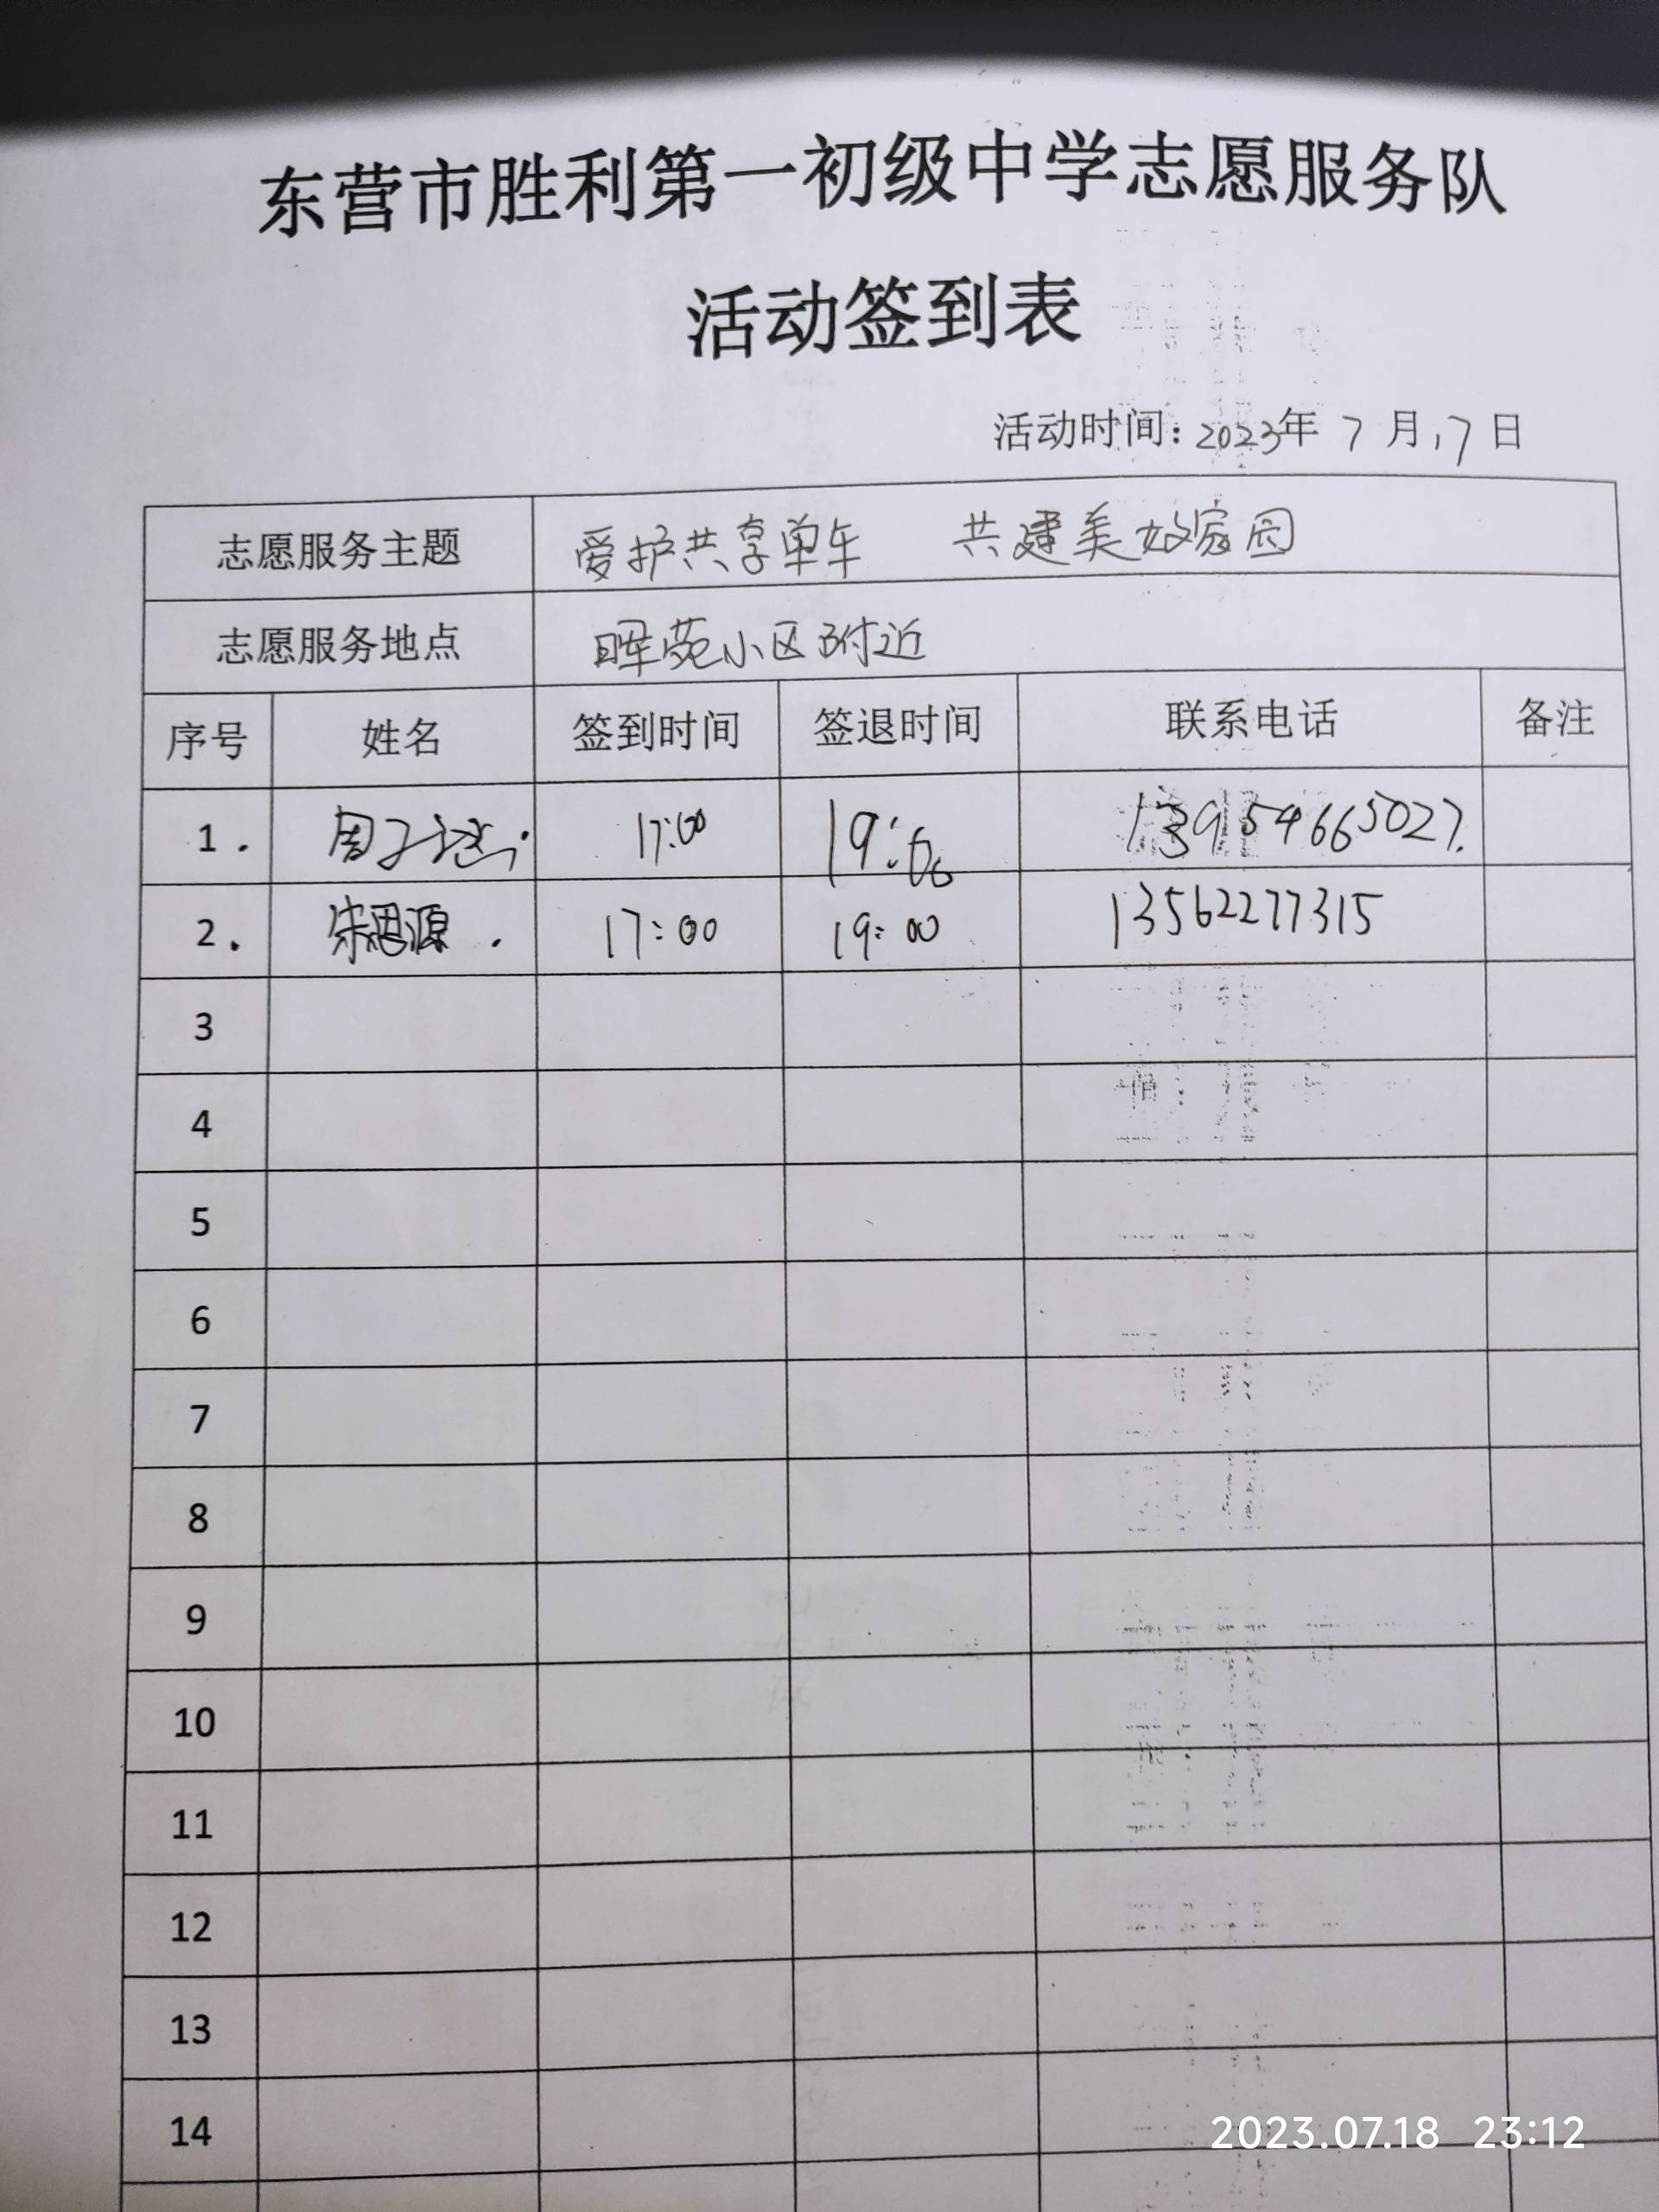 东营市胜利第一初级中学志愿服务队
活动签到表
活动时间：2023年 7 月 17 日
志愿服务主题 爱护共享单车 共建美好家园
志愿服务地点 晖苑小区附近
序号 姓名 签到时间 签退时间 联系电话 备注
1. 周子 17:00 19:00 13954665027.
2. 宋思源. 17:00 19:00 13562277315
3
4
5
6
7
8
9
10
11
12
13
14
2023.07.18 23:12